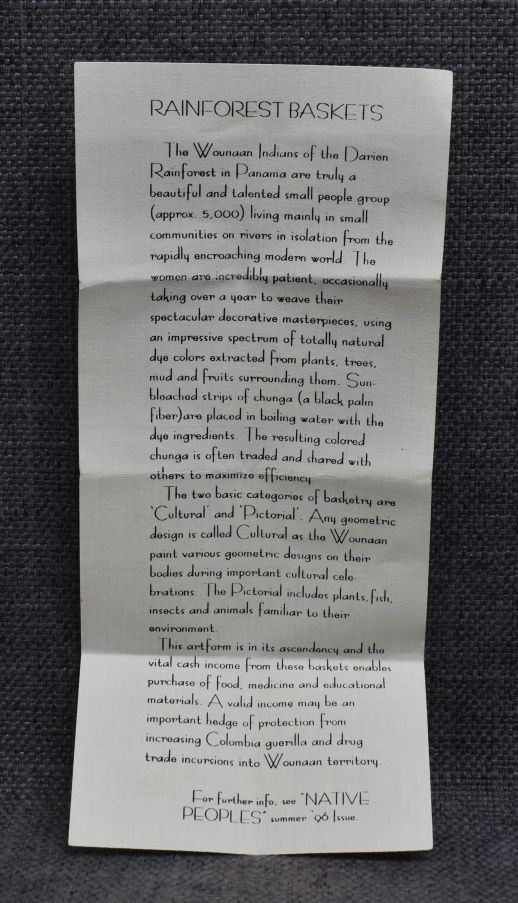 RAINFOREST BASKETS
The Wounaan Indians of the Darien
Rainforest in Panama are truly a
beautiful and talented small people group
(approx. 5,000) living mainly in small
communities on rivers in isolation from the
rapidly encroaching modern world. The
women are incredibly patient, occasionally
taking over a year to weave their
spectacular decorative masterpieces, using
an impressive spectrum of totally natural
dye colors extracted from plants, trees,
mud and fruits surrounding them. Sun-
bleached strips of chunga (a black palm
fiber)are placed in boiling water with the
dye ingredients. The resulting colored
chunga is often traded and shared with
others to maximize efficiency.
The two basic categories of basketry are
'Cultural' and 'Pictorial'. Any geometric
design is called Cultural as the Wounaan
paint various geometric designs on their
bodies during important cultural cele-
brations. The Pictorial includes plants, fish,
insects and animals familiar to their
environment.
This artform is in its ascendency and the
vital cash income from these baskets enables
purchase of food, medicine and educational
materials. A valid income may be an
important hedge of protection from
increasing Colombia guerilla and drug
trade incursions into Wounaan territory.
For further info, see "NATIVE
PEOPLES" summer '96 Issue.